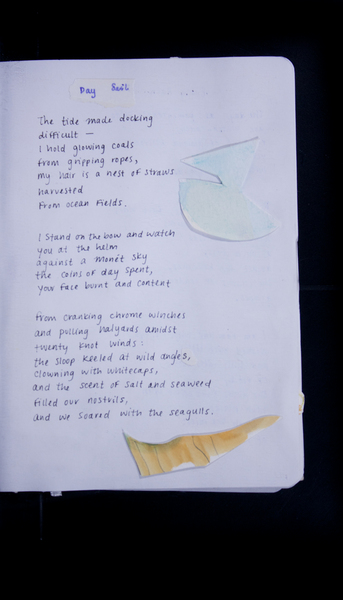 Day Sail
The tide made docking
difficult —
I hold glowing coals
from gripping ropes,
my hair is a nest of straws
harvested
From ocean fields.
I stand on the bow and watch
you at the helm
against a monét sky
the coins of day spent,
your face burnt and content
from cranking chrome winches
and pulling halyards amidst
twenty knot winds:
the sloop keeled at wild angles,
clowning with whitecaps,
and the scent of salt and seaweed
filled our nostrils,
and we soared with the seagulls.